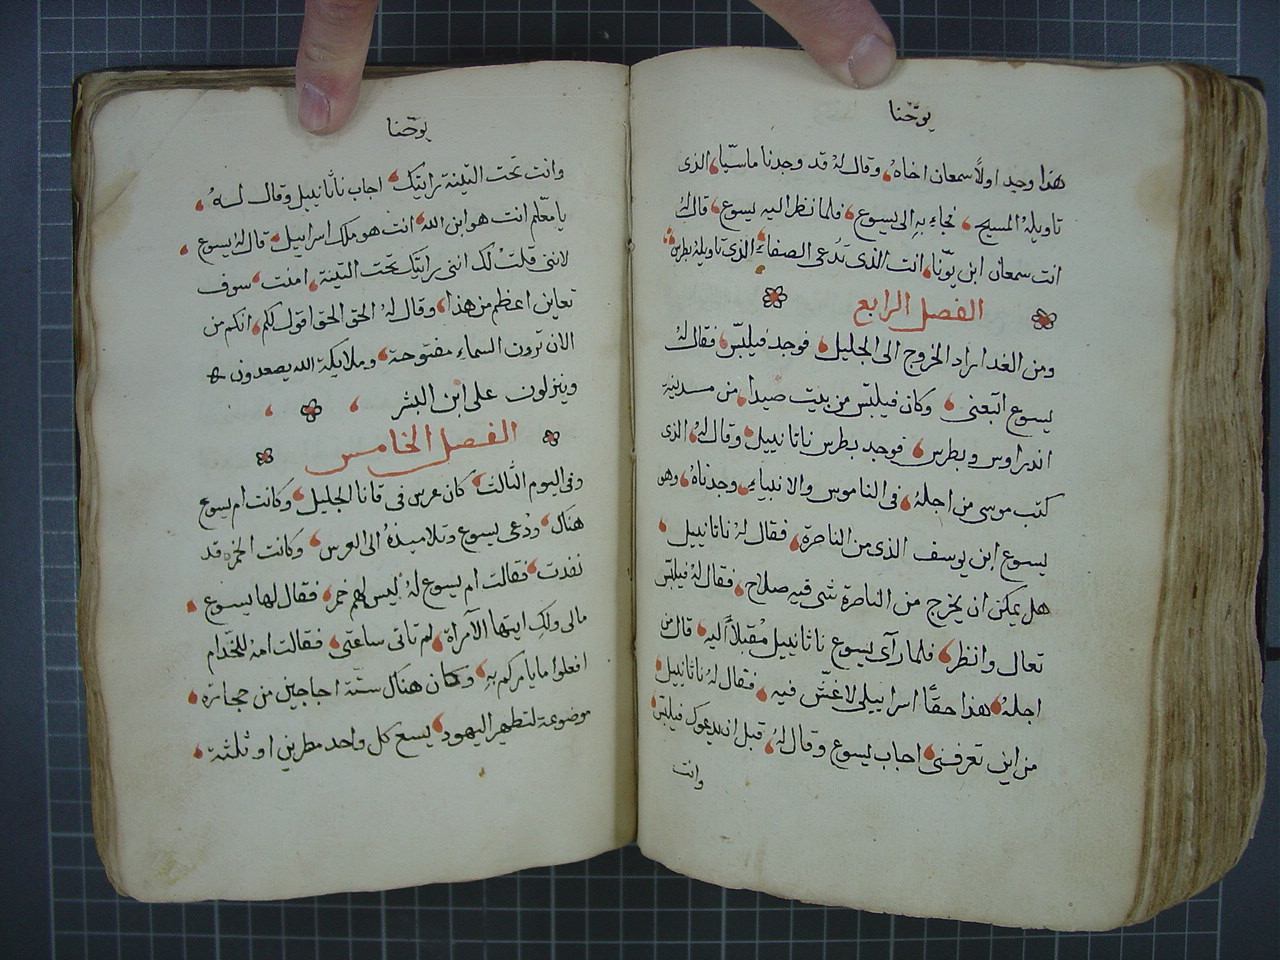 يوحنا
هذا وجد اولاً سمعان اخاهُ وقال لهُ قد وجدنا ماسيّا الذى
تاويلهُ المسيح فجاء بهِ الى يسوع فلما نظر اليه يسوع قال لهُ
انت سمعان ابن يوّنا انت الذى تُدعى الصفاء الذى تاويلهُ بطرس
الفصل الرابع
ومن الغد اراد الخروج الى الجليل فوجد فيلبّس فقال لهُ
يسوع اتبعنى وكان فيلبّس من بيت صيدا من مدينة
اندراوس وبطرس فوجد بطرس ناثانييل وقال لهُ الذى
كتب موسى من اجلهُ فى الناموس والانبياء وجدناهُ وهو
يسوع ابن يوسف الذى من الناصرة فقال لهُ ناثانييل
هل يمكن ان يخرج من الناصرة شى فيه صلاح فقال لهُ فيلبّس
تعال وانظر فلما رآى يسوع ناثانييل مُقبلاً اليه قال من
اجلهُ هذا حقًا اسراييلى لا غشّ فيه فقال لهُ ناثانييل
من اين تعرفنى اجاب يسوع وقال لهُ قبل ان يدعوك فيلبّس
وانت
يوحنا
وانت تحت التينة رايتك اجاب ناثانييل وقال لهُ
يا معّلم انت هو ابن الله انت هو ملك اسراييل قال لهُ يسوع
لاننى قلت لك اننى رايتك تحت التينة امنت سوف
تعاين اعظم من هذا وقال لهُ الحق الحق اقول لكم انكم من
الان ترون السماء مفتوحة وملايكة الله يصعدون
وينزلون على ابن البشر
الفصل الخامس
وفى اليوم الثالث كان عرس فى قانا الجليل وكانت ام يسوع
هناك ودُعى يسوع وتلاميذهُ الى العرس وكانت الخمره قد
نفذت فقالت ام يسوع لهُ ليس لهم خمر فقال لها يسوع
مالى ولكِ ايتها الآمراة لم تاتى ساعتى فقالت امهُ للخدّام
افعلوا ما يامركم بهِ وكان هناك ستّة اجاجين من حجارة
موضوعة لتطهير اليهود يسع كل واحد مطرين او ثلثة